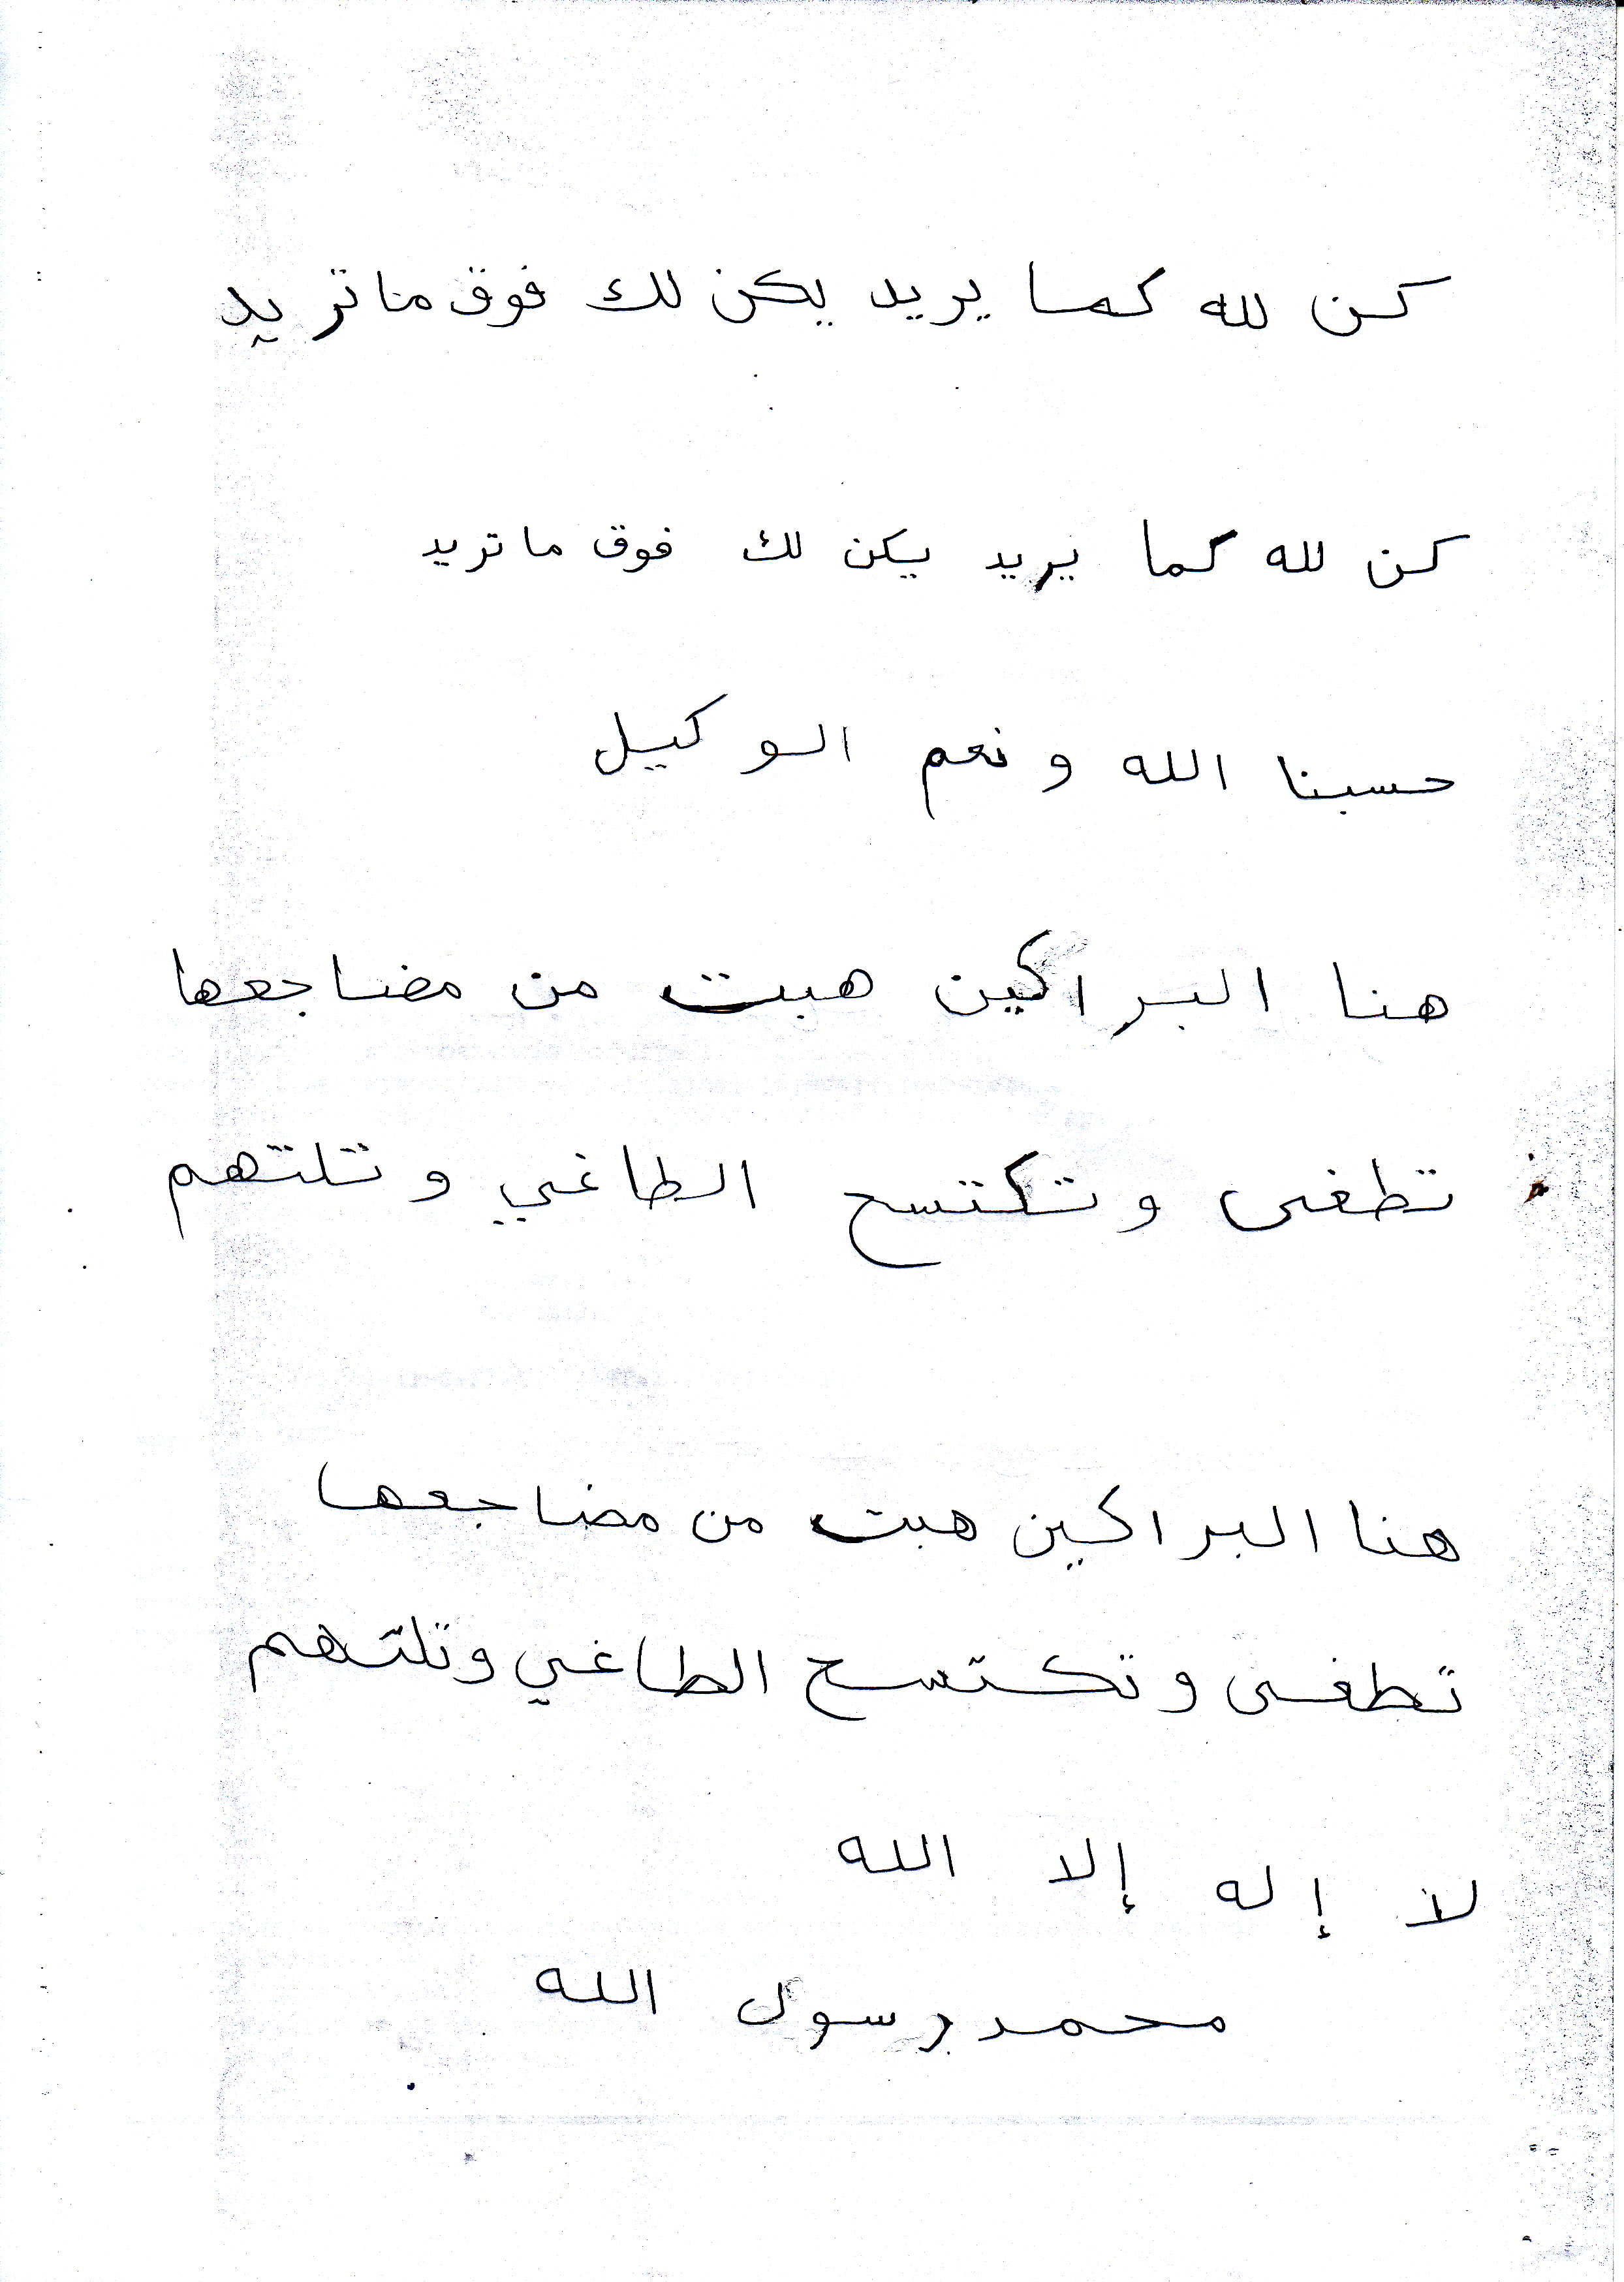 كن لله كما يريد يكن لك فوق ما تريد
كن لله كما يريد يكن لك فوق ما تريد
حسبنا الله و نعم الوكيل
هنا البراكين هبت من مضاجعها
تطغى و تكتسح الطاغي و تلتهم
هنا البراكين هبت من مضاجعها
تطغى و تكتسح الطاغي و تلتهم
لا إله إلا الله
محمد رسول الله